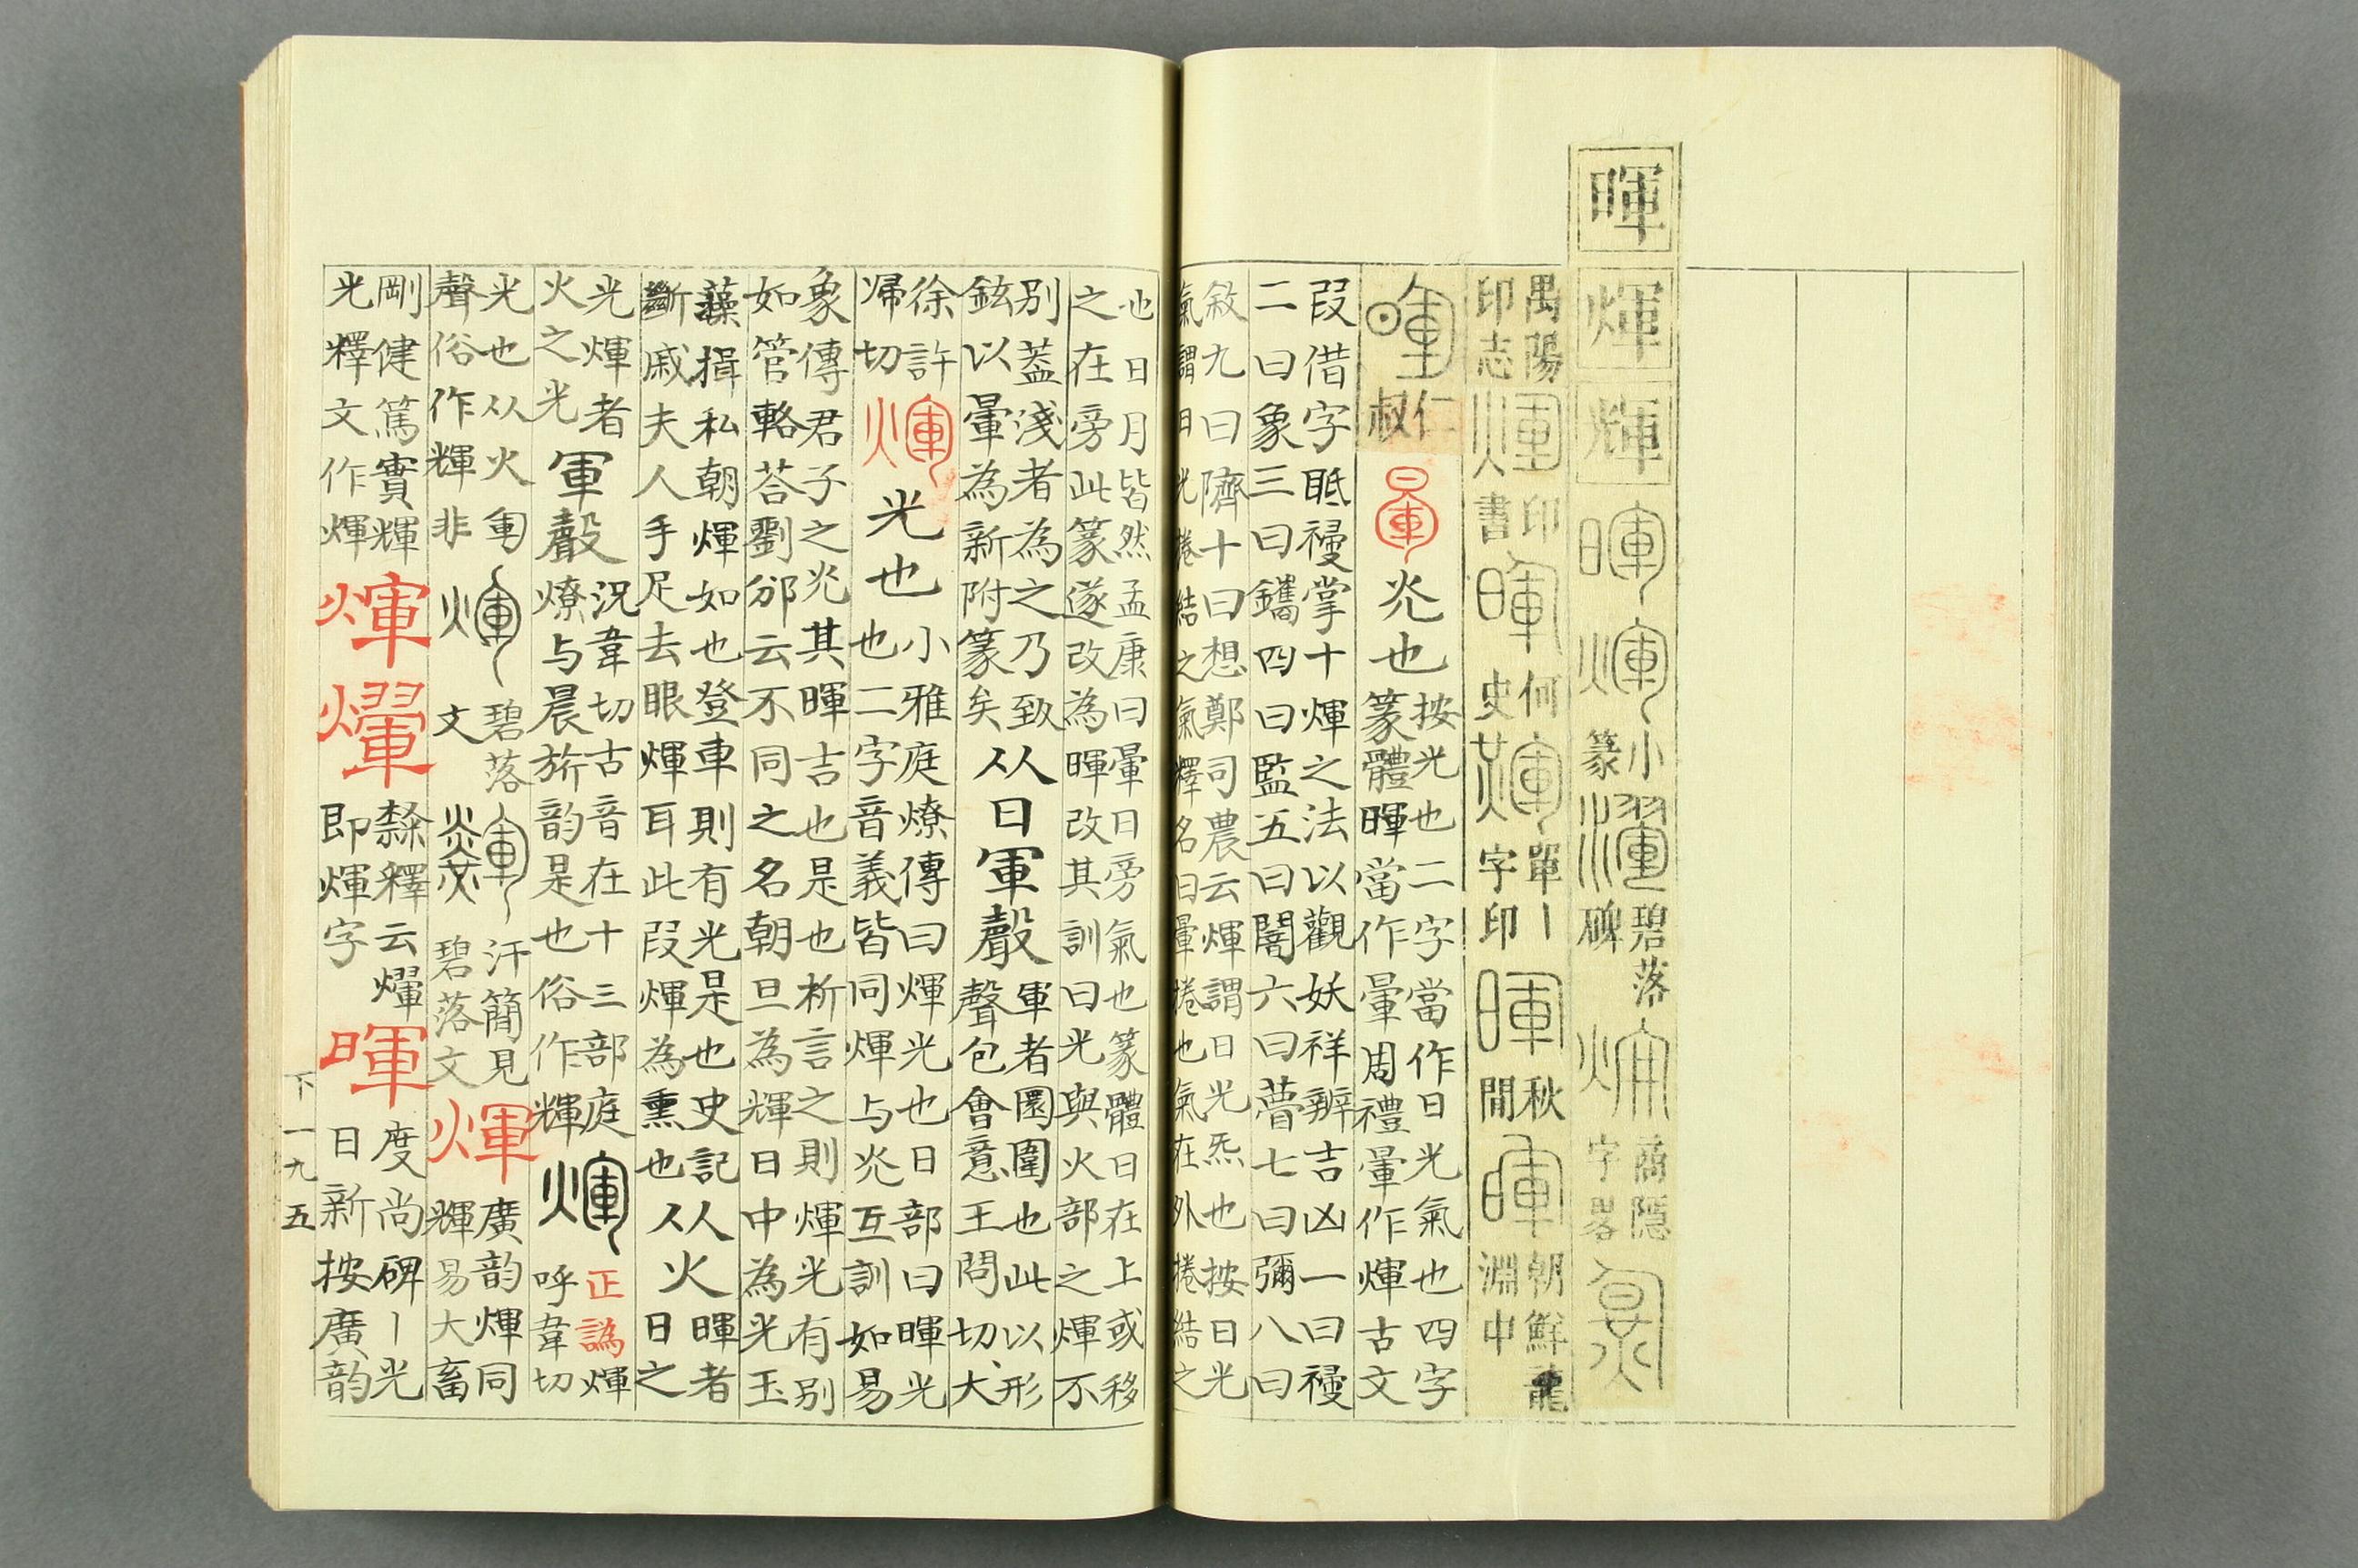 暉
煇 輝 暉 煇 小篆 碧落碑 商隱字畧
禺陽印志 煇 印書 暉 何史 煇 單丨字印 暉 秋閒 暉 朝鮮龍淵中
暉 仁叔 暈 光也 按光也二字當作日光氣也四字
篆體暉當作暈周禮暈作煇古文
叚借字眡祲掌十煇之法以觀妖祥辨吉凶一曰祲
二曰象三曰鑴四曰監五曰闇六曰瞢七曰彌八曰
敘九曰隮十曰想鄭司農云煇謂日光炁也按日光
氣謂日光捲結之氣釋名曰暈捲也氣在外捲結之
也日月皆然孟康曰暈日旁氣也篆體日在上或移
之在旁此篆遂改為暉改其訓曰光與火部之煇不
别葢淺者為之乃致
鉉以暈為新附篆矣 从日軍聲 軍者圜圍也此以形
聲包會意王問切、大
徐許
歸切 煇 光也 小雅庭燎傳曰煇光也日部曰暉光
也二字音義皆同煇与光互訓如易
象傳君子之光其暉吉也是也析言之則煇光有别
如管輅荅劉邠云不同之名朝旦為輝日中為光玉
藻揖私朝煇如也登車則有光是也史記
斷戚夫人手足去眼煇耳此叚煇為熏也 从火 暉者
日之
光煇者
火之光 軍聲 況韋切古音在十三部庭
燎与晨旂韵是也俗作輝 煇 正譌煇
呼韋切
光也从火軍
聲俗作輝非 煇 碧落文 汗簡見
碧落文 煇 廣韵煇同
輝易大畜
剛健篤實輝
光釋文作煇 煇 隸釋云
即煇字 暉 度尚碑丨光
日新按廣韵
下一九五